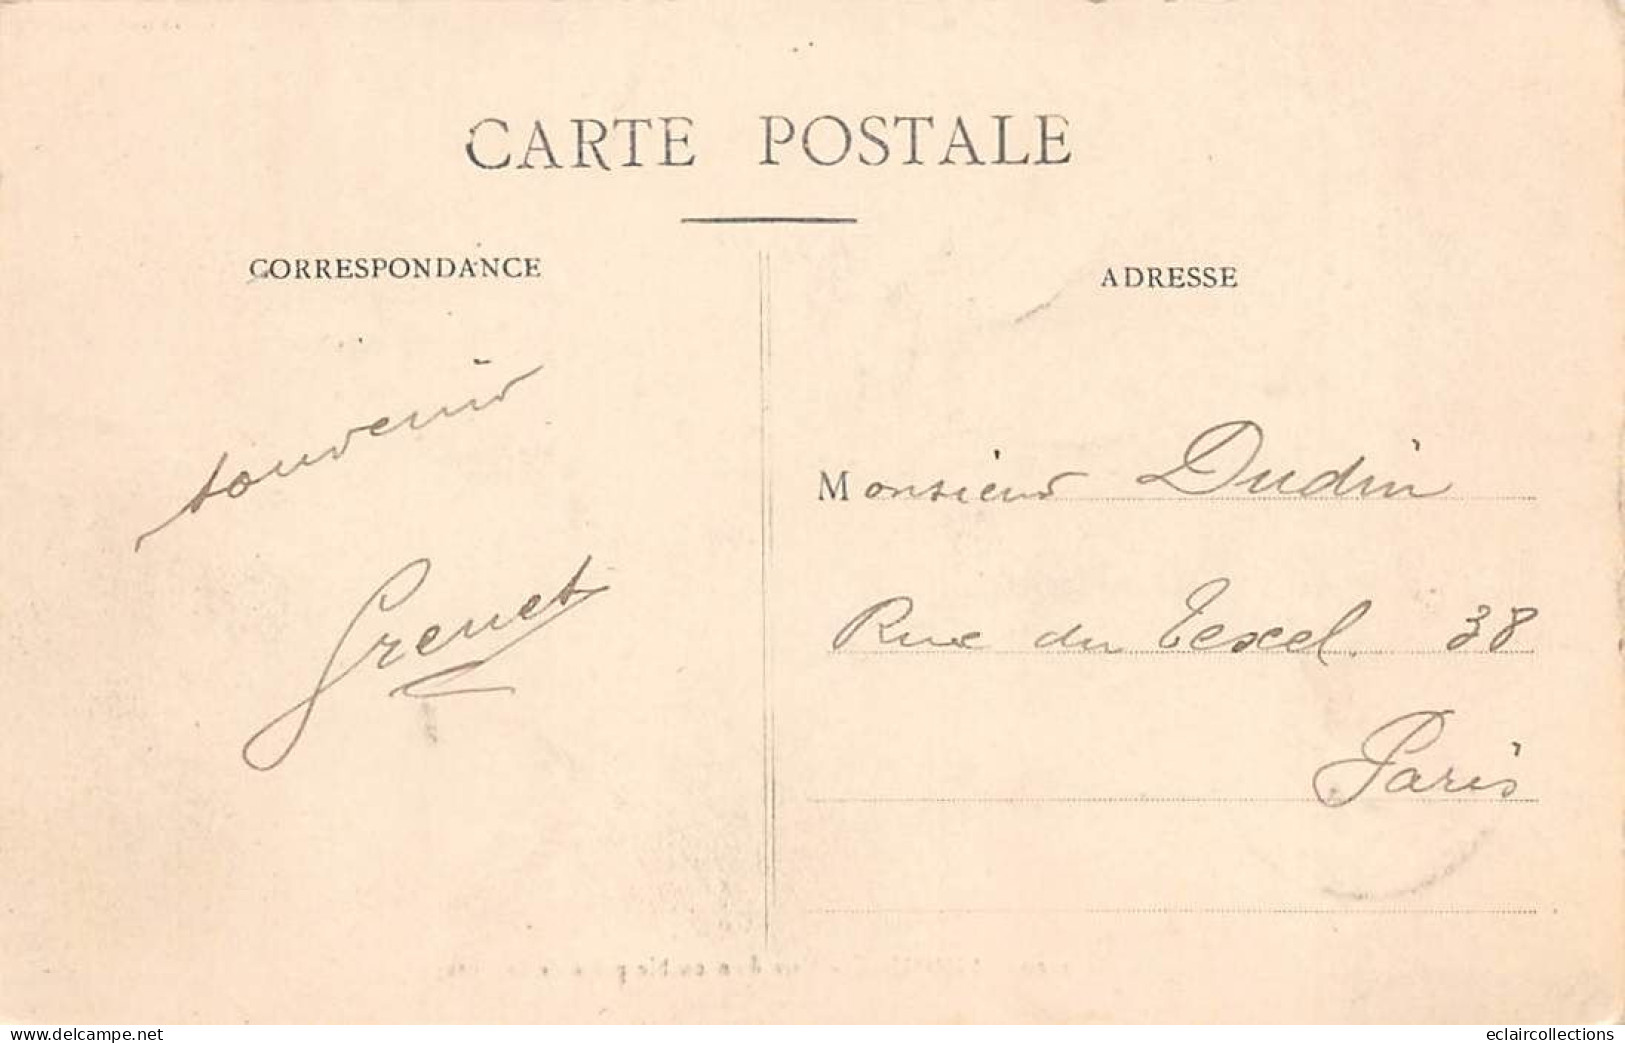 CARTE POSTALE
CORRESPONDANCE
ADRESSE
souvenir
Grenet
Monsieur Dudin
Rue du Texel. 38
Paris
www.delcampe.net
eclaircollections